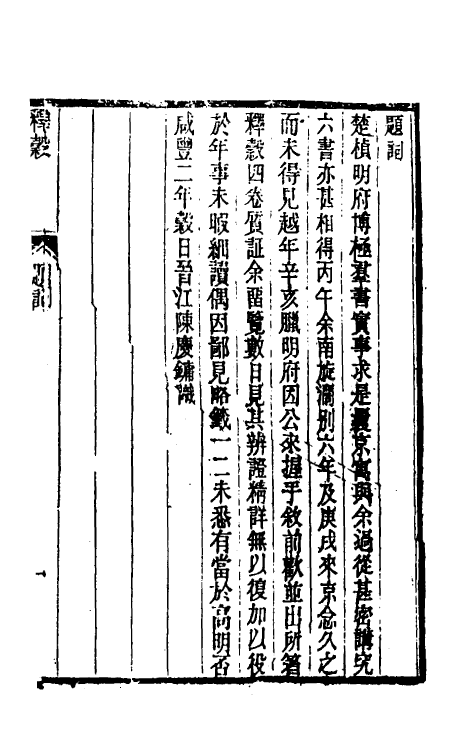 題詞
楚楨明府博極羣書實事求是曩京寓與余過從甚密講究
六書亦甚相得丙午余南旋濶別六年及庚戌來京念久之
而未得見越年辛亥臘明府因公來握手敘前歡並出所著
釋穀四卷質証余畱覽數日見其辨證精詳無以復加以役
於年事未暇細讀偶因鄙見略籤一二未悉有當於高明否
咸豐二年穀日晉江陳慶鏞識
釋穀
題詞
一